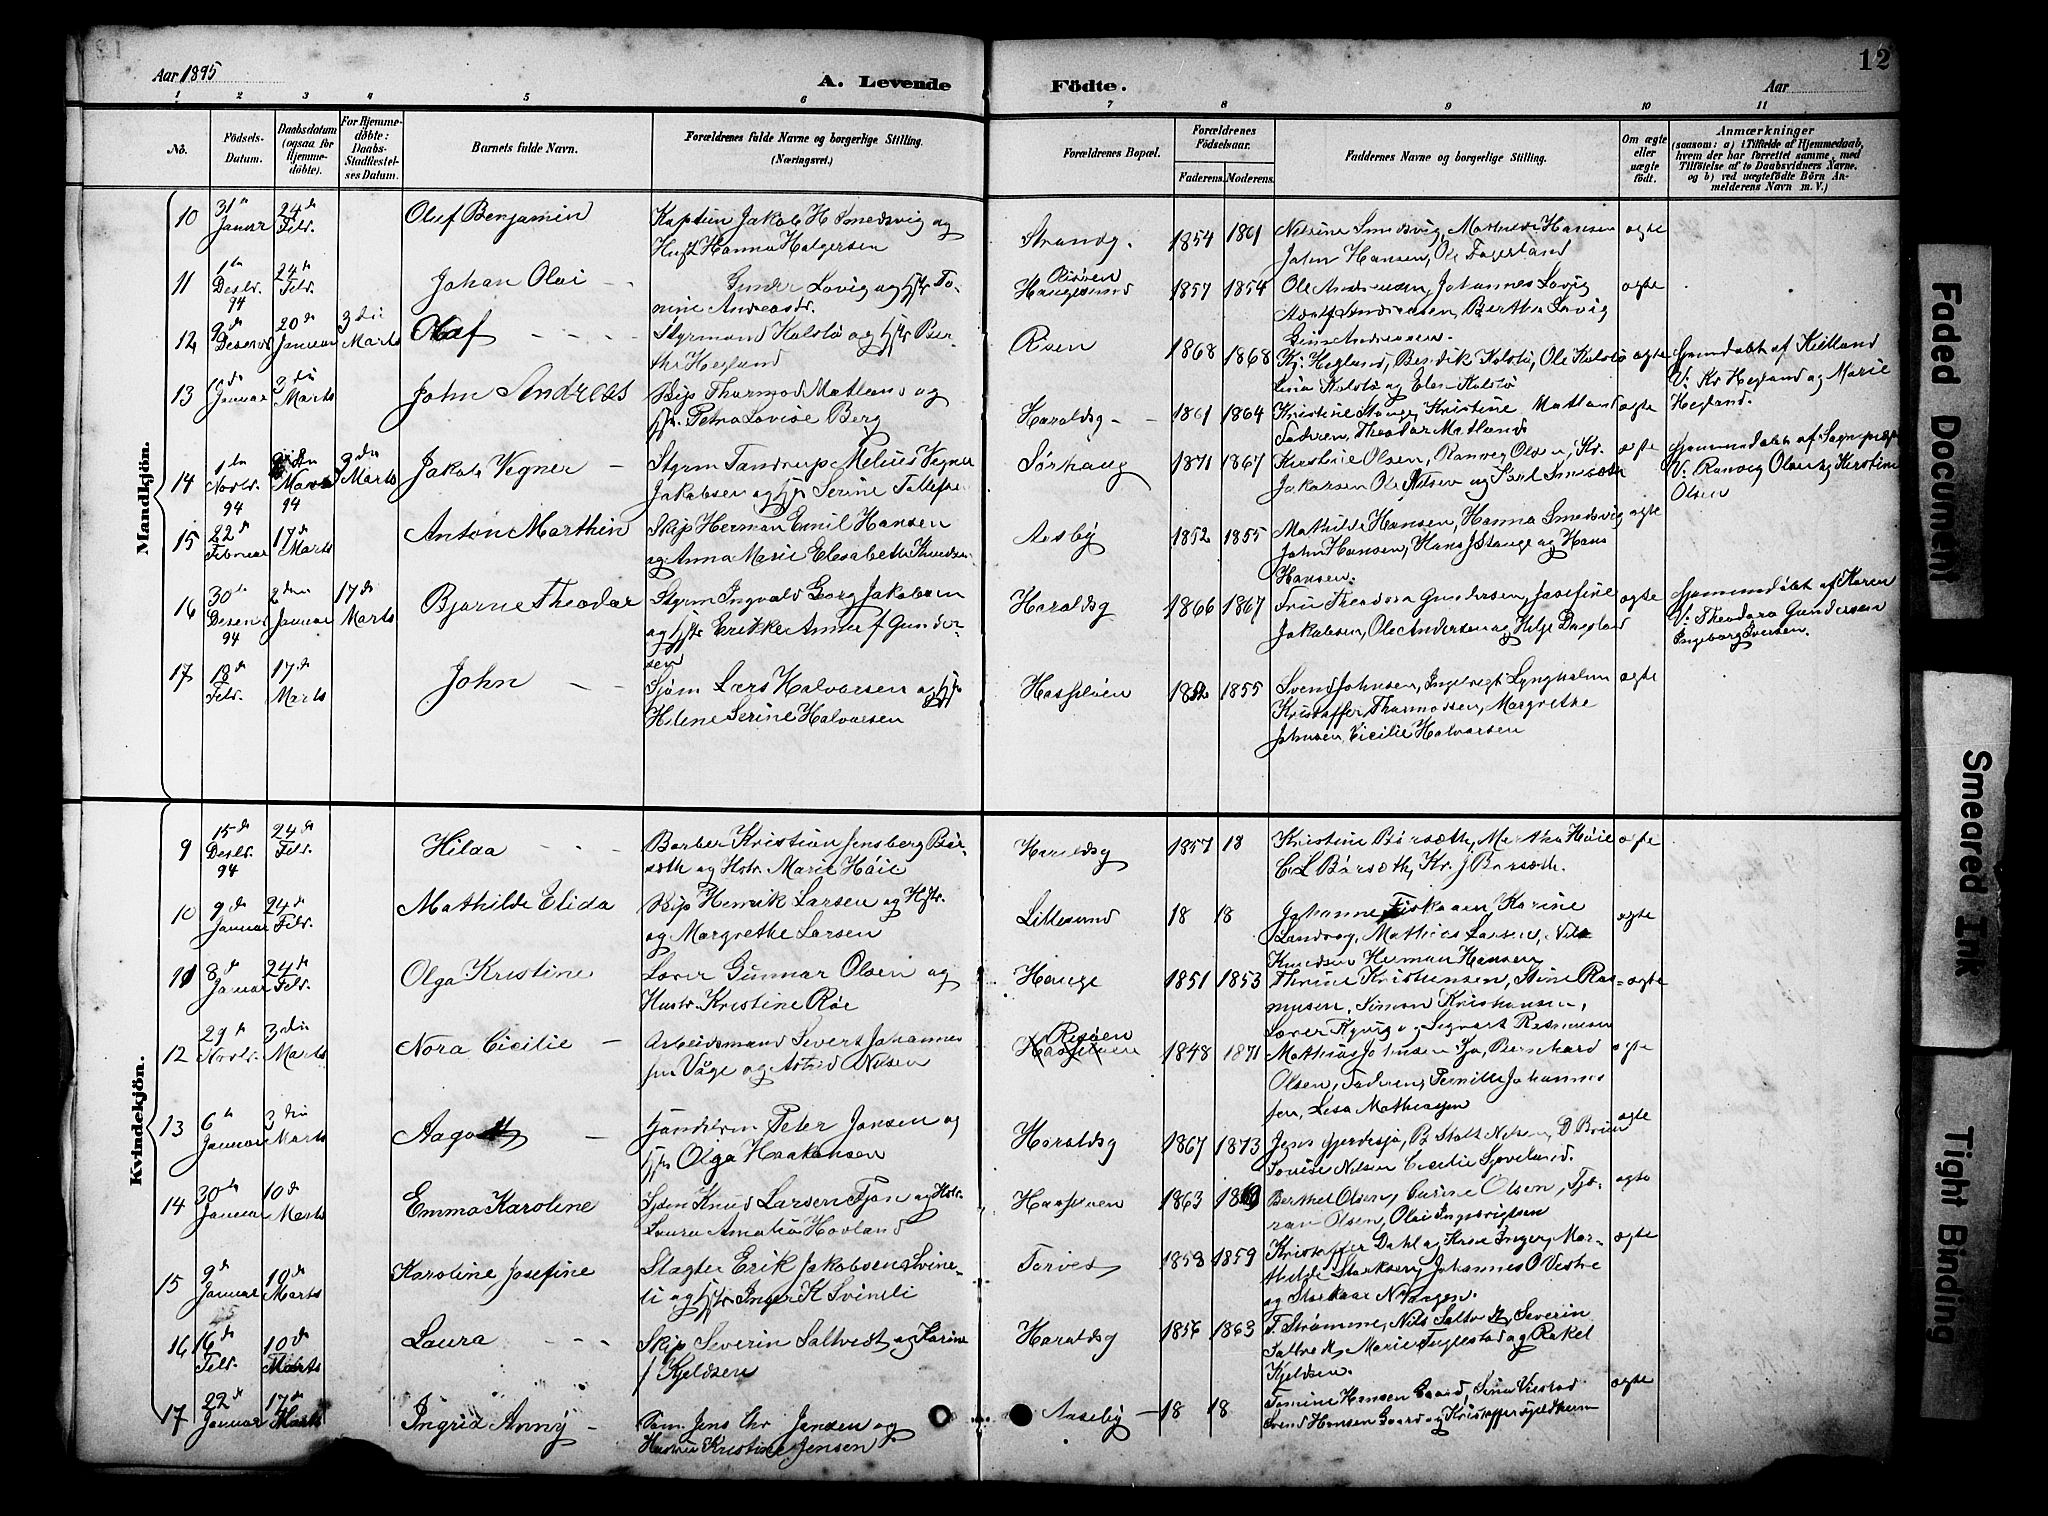 Aar 1895
A. Levende
Födte.
Aar
12
1 2 3 4 5 6 7 8 9 10 11
No.
Födsels-
Datum.
Daabsdatum
(ogsaa for
Hjemme-
döbte).
For Hjemme-
döbte:
Daabs-
Stadfæstel-
ses Datum.
Barnets fulde Navn.
Forældrenes fulde Navne og borgerlige Stilling.
(Næringsvei.)
Forældrenes Bopæl.
Forældrenes
Födselsaar.
Faderens. Moderens.
Faddernes Navne og borgerlige Stilling.
Om ægte
eller
uægte
födt.
Anmærkninger
(saasom: a) i Tilfælde af Hjemmedaab,
hvem der har forrettet samme, med
Tilföielse af to Daabsvidners Navne,
og b) ved uægtefödte Börn An-
melderens Navn m. V.)
Mandkjön.
10 31te Januar 24de Febr. Oluf Benjamin
Kaptein Jakob H Smedsvig og
Hust Hanna Holgersen
Strandg. 1854 1861
Nelsine Smedsvig, Mathilde Hansen
John Hansen, Ole Fagerland
ægte
11 1te Desbr. 94 24de Febr. Johan Olai
Gunder Lovig og Hstr To-
mine Andreasdr.
Risöen
Haugesund 1857 1854
Ole Andreasen, Johannes Lovig
Adolf Andreasen, Bertha Lovig
Gine Andreasen.
ægte
12 9de Desembr 20de Januar 3die Marts Olaf
Styrmand Kolstö og Hstr Ber-
tha Hegland
Risen 1868 1868
Kj. Hegland, Bendik Kolstö, Ole Kolstö
Lina Kolstö og Elen Kolstö
ægte
Hjemdöbt af Kielland
V: Kr Hegland og Marie
Hegland.
13 Januar 3die Marts John Andreas
Skip Thormod Matland og
Petra Lovise Berg
Haraldsg - 1861 1864
Kristine Stange Kristine Matland
Faderen, Theodor Matland
ægte
14 1te Novbr. 94 94 3die Marts Jakob Vegner
Styrm Tandrup Melius Vegner
Jakobsen og Hstr Serine Tollefse
Sörhaug 1871 1867
Kirstine Olsen, Ranveig Olsen, Kr.
Jakobsen Ole Nilsen og
ægte
Hjemmedöbt af Sogneprest
V: Ranveig Olsen og Kirstine
Olsen
15 22de Februar 17de Marts Anton Marthin
Skip Herman Emil Hansen
og Anna Marie Elesabeth Knudsen
Aasby 1852 1855
Mathilde Hansen, Hanna Smedsvig
John Hansen, Hans J Stange og Hans
Hansen.
ægte
16 30te Desemb 94 2den Januar 17de Marts Bjarne Theodor
Styrm Ingvald Georg Jakobsen
og Hstr Erikke Anna f Gunder-
sen
Haraldsg 1866 1867
Fru Theodora Gundersen, Josefine
Jakobsen, Ole Andersen og Helje Dagsland
ægte
Hjemmedöbt af Karen
V: Theodora Gundersen
Ingeborg Iversen.
17 18de Febr. 17de Marts John
Sjöm Lars Halvorsen og Hstr
Helene Serine Halvorsen
Hasselöen 1852 1855
Svend Johnsen, Ingebrigt Lyngholm
Kristoffer Thormodsen, Margrethe
Johnsen, Cicilie Halvorsen
ægte
Kvindekjön.
9 15de Desbr. 94 24de Febr. Hilda
Barber Kristian Jensberg Bör-
sæth og Hstr Marie Höie
Haraldsg 1857 18
Kristine Börsæth, Martha Höie
C L Börsæth, Kr. J Börsæth.
ægte
10 9de Januar 24de Febr. Mathilde Elida
Skip Henrik Larsen og Hstr.
og Margrethe Larsen
Lillesund 18 18
Johanne Fiskaaen, Karine
Landvog, Mathias Larsen, Nils
Knudsen Herman Hansen
ægte
11 8de Januar 24de Febr. Olga Kristine
Lærer Gunnar Olsen og
Hustr Kristine Röe
Hauge 1851 1853
Thrine Kristiansen, Stine Ras-
musen, Simon Kristiansen,
Lærer og Sigvart Rasmusen
ægte
12 29de Novbr. 3die Marts Nora Cicilie
Arbeidsmand Sivert Johannes
sen Våge og Astrid Nilsen
Risöen
Hasselöen 1848 1871
Mathias Johnsen Sjo, Bernhard
Olsen, Faderen, Pernille Johannes
sen, Lisa Mathiassen
ægte
13 6te Januar 3die Marts Aagoth
Peter Jensen og
Hstr Olga Haakonsen
Haraldsg 1867 1873
Jens Gjerdesjö, B Stolt Nilsen, D Bruun
Lovise Nilsen Cecilie Sjoveland.
ægte
14 30te Januar 10de Marts Emma Karoline
Sjöm Knud Larsen Fjon og Hstr.
Laura Amalia Hovland
Hasselöen 1863
Berthel Olsen, Carine Olsen, Tjö-
ran Olsen, Olai Ingebrigtsen
ægte
15 9de Januar 10de Marts Karoline Josefine
Slagter Erik Jakobsen Svine-
li og Hstr Inger K Svineli
Torvet 1858 1859
Kristoffer Dahl og Kone Inger, Mat-
thilde Storksen, Johannes O Vestre
og Storkaar N Vorgen.
ægte
16 16de Febr. 10de Marts Laura
Skip Severin Saltvedt og Karine
f Kjeldsen
Haraldsg 1856 1863
T. Strömme, Nils Saltvedt, Severin
Saltvedt, Marie Fuglestad og Rakel
Kjeldsen.
ægte
17 22de Januar 17de Marts Ingrid Anny
Söm. Jens Chr Jensen og
Hustru Kristine Jensen
Aasebÿ 18 18
Tomine Hansen Gaard, Sina Viestad
Svend Hansen Gaard og Kristoffer Sjeldheim
ægte
Faded Document
Smeared Ink
Tight Binding